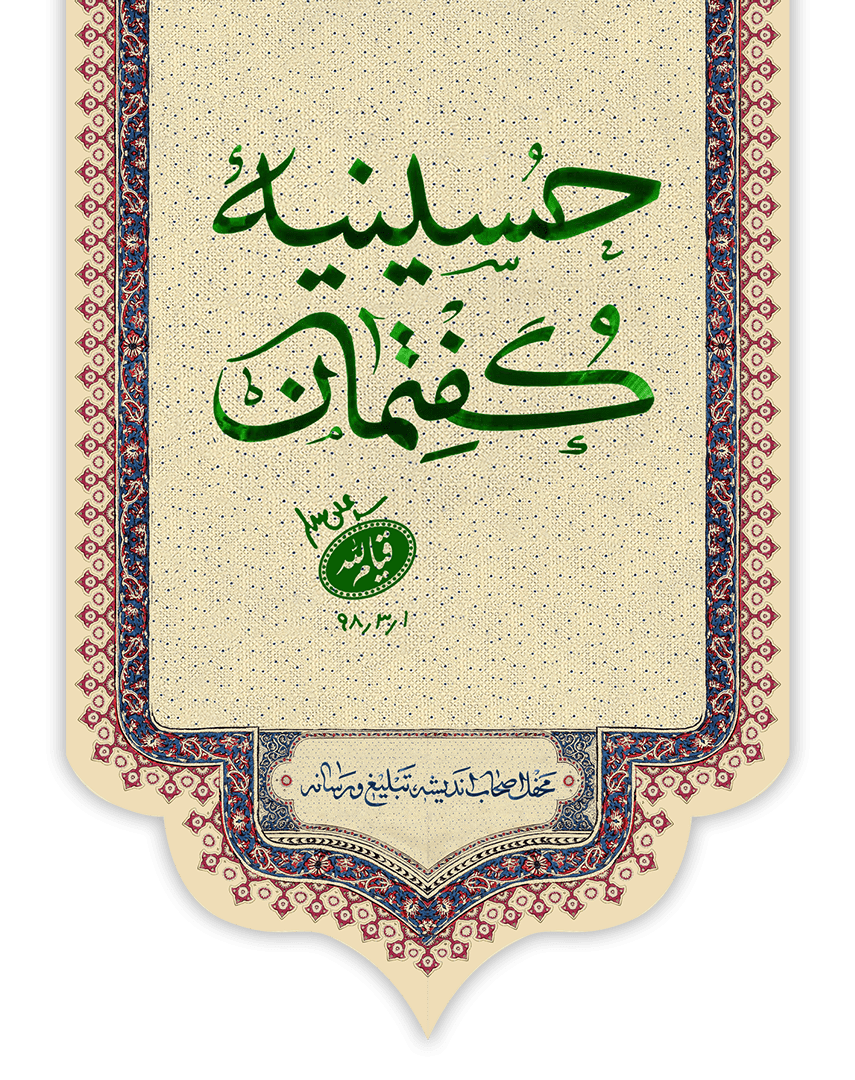 حسینیهٔ
گفتمان
سید علی
قیام لله
۹۸٫۳٫۱
محفل اصحاب اندیشه تبلیغ و رسانه